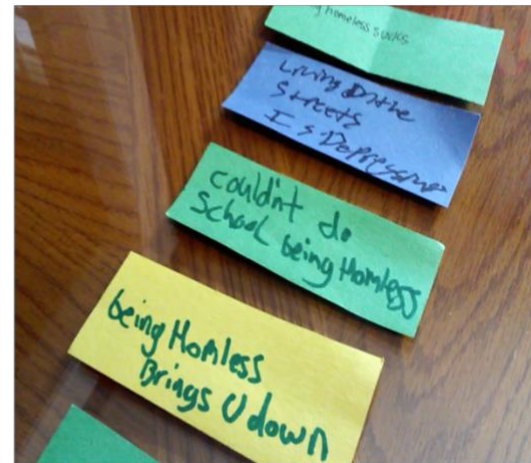 homeless sucks
Living On the
Streets
Is Depressing
couldnt do
School being Homless
being Homless
Brings U down